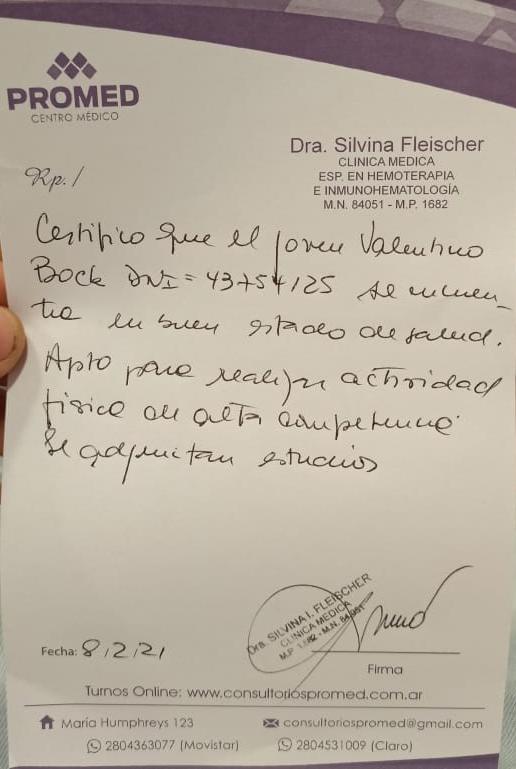 PROMED
CENTRO MÉDICO
Dra. Silvina Fleischer
CLINICA MEDICA
ESP. EN HEMOTERAPIA
E INMUNOHEMATOLOGÍA
M.N. 84051 - M.P. 1682
Rp./
Certifico que el joven Valentino
Bock DNI = 43754125 se encuen-
tra en buen estado de salud.
Apto para realizar actividad
física de alta competencia
Se adjuntan estudios
Dra. SILVINA I. FLEISCHER
CLINICA MEDICA
M.P. 1.682 - M.N. 84.051
Fecha: 8/2/21
Firma
Turnos Online: www.consultoriospromed.com.ar
María Humphreys 123
consultoriospromed@gmail.com
2804363077 (Movistar)
2804531009 (Claro)